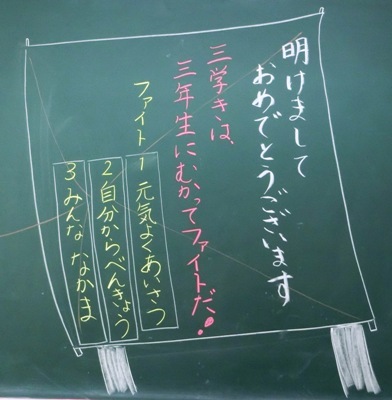 明けまして
おめでとうございます
三学きは、
三年生にむかってファイトだ!
ファイト1 元気よくあいさつ
2 自分からべんきょう
3 みんな なかま